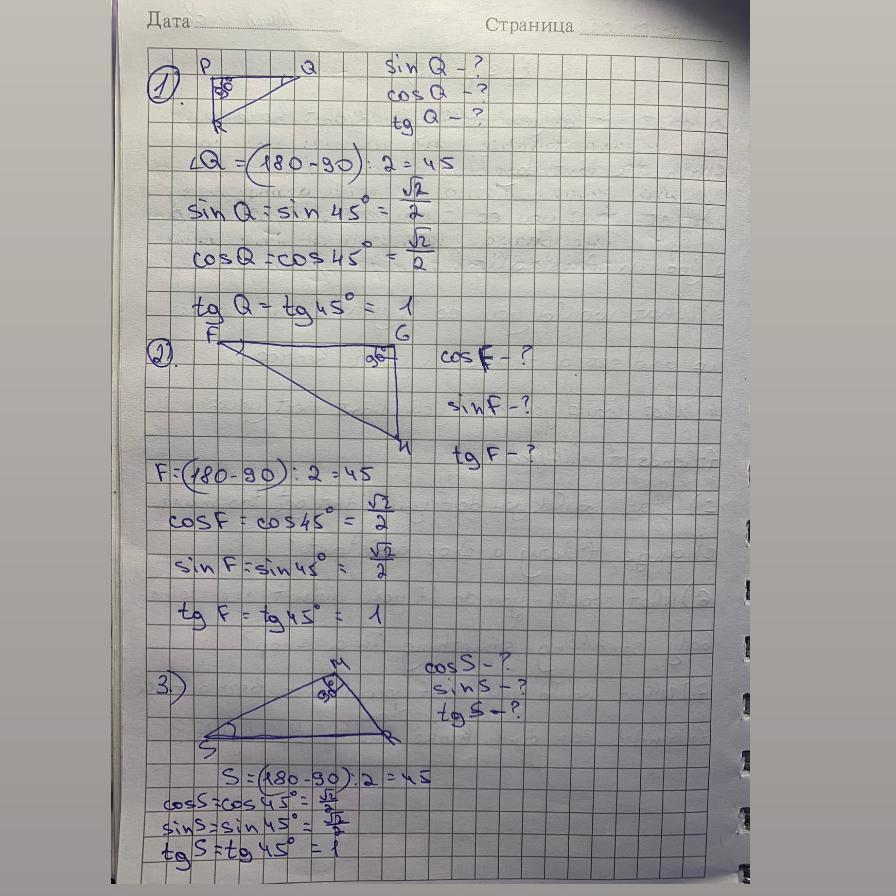 Дата
Страница
1)
P
Q
90°
R
sin Q - ?
cos Q - ?
tg Q - ?
∠Q = (180-90) : 2 = 45
sin Q = sin 45° = √2/2
cos Q = cos 45° = √2/2
tg Q = tg 45° = 1
2)
F
G
90°
H
cos F - ?
sin F - ?
tg F - ?
F = (180-90) : 2 = 45
cos F = cos 45° = √2/2
sin F = sin 45° = √2/2
tg F = tg 45° = 1
3.)
M
90°
S
cos S - ?
sin S - ?
tg S - ?
S = (180-90) : 2 = 45
cos S = cos 45° = √2/2
sin S = sin 45° = √2/2
tg S = tg 45° = 1